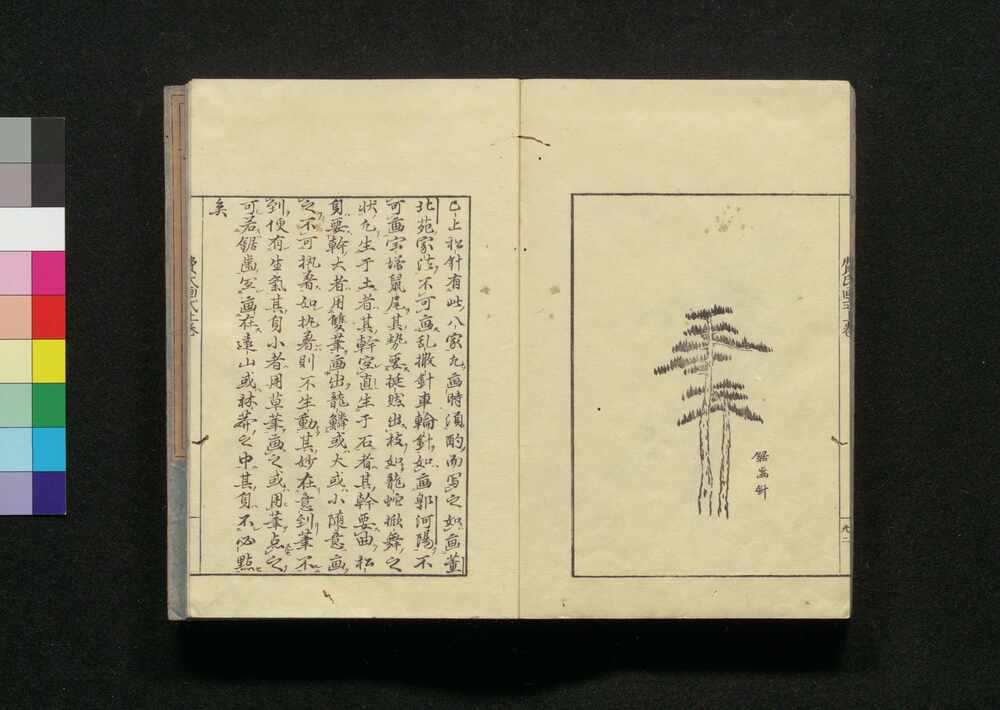 鋸歯針
已上松針有此八家凡画時須酌而写之如画董
北苑家法不可画乱撒針車輪針如画郭河陽不
可画宝塔鼠尾其勢要挺然出枝如龍蛇掀舞之
状凡生于土者其幹宜直生于石者其幹要曲松
身要幹大者用雙筆画出龍鱗或大或小随意画
之不可执着如执着則不生動其妙在意到筆不
到便有生氣其身小者用草筆画之或用筆点之
可若鋸歯宜画在遠山或林莽之中其身不必點
矣
費氏画式上巻